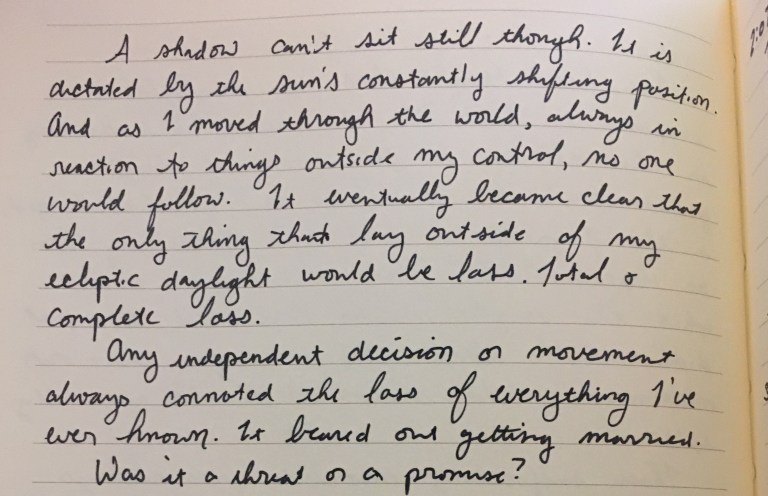 A shadow can't sit still though. It is
dictated by the sun's constantly shifting position.
And as I moved through the world, always in
reaction to things outside my control, no one
would follow. It eventually became clear that
the only thing that lay outside of my
ecliptic daylight would be loss. Total &
complete loss.
Any independent decision or movement
always connoted the loss of everything I've
ever known. It beared out getting married.
Was it a threat or a promise?